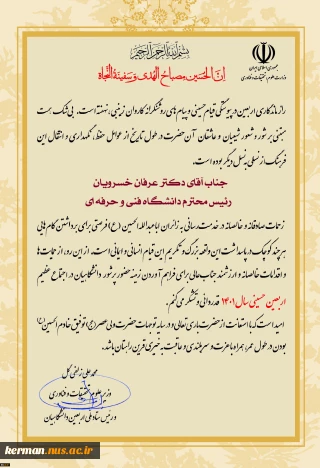 بسم الله الرحمن الرحیم
ان الحسین مصباح الهدی و سفینة النجاة
جمهوری اسلامی ایران
وزارت علوم، تحقیقات و فناوری
راز ماندگاری اربعین در پیوستگی قیام حسینی و پیام های روشنگرانه کاروان زینبی، نهفته است. بی شک سنت
مبتنی بر شور و شعور شیعیان و عاشقان آن حضرت در طول تاریخ از عوامل حفظ، نگهداری و انتقال این
فرهنگ از نسلی به نسل دیگر بوده است.
جناب آقای دکتر عرفان خسرویان
رئیس محترم دانشگاه فنی و حرفه ای
زحمات صادقانه و خالصانه در خدمت رسانی به زائران اباعبدالله الحسین (ع) فرصتی برای برداشتن گام هایی
هر چند کوچک در پاسداشت این واقعه بزرگ و تکریم این قیام انسانی و ایمانی است. از این رو، از حمایت ها
و اقدامات خالصانه و ارزشمند جناب عالی برای فراهم آوردن زمینه حضور پرشور دانشگاهیان در اجتماع عظیم
اربعین حسینی سال ۱۴۰۱ قدردانی و تشکر می کنم.
امید است که با استعانت از حضرت باری تعالی و در سایه توجهات حضرت ولی عصر (عج) توفیق خادم الحسین (ع)
بودن در طول عمر، همراه با عزت و سربلندی و عاقبت به خیری قرین راهتان باشد.
محمدعلی زلفی گل
وزیر علوم، تحقیقات و فناوری
و رئیس ستاد ملی اربعین دانشگاهیان
kerman.nus.ac.ir